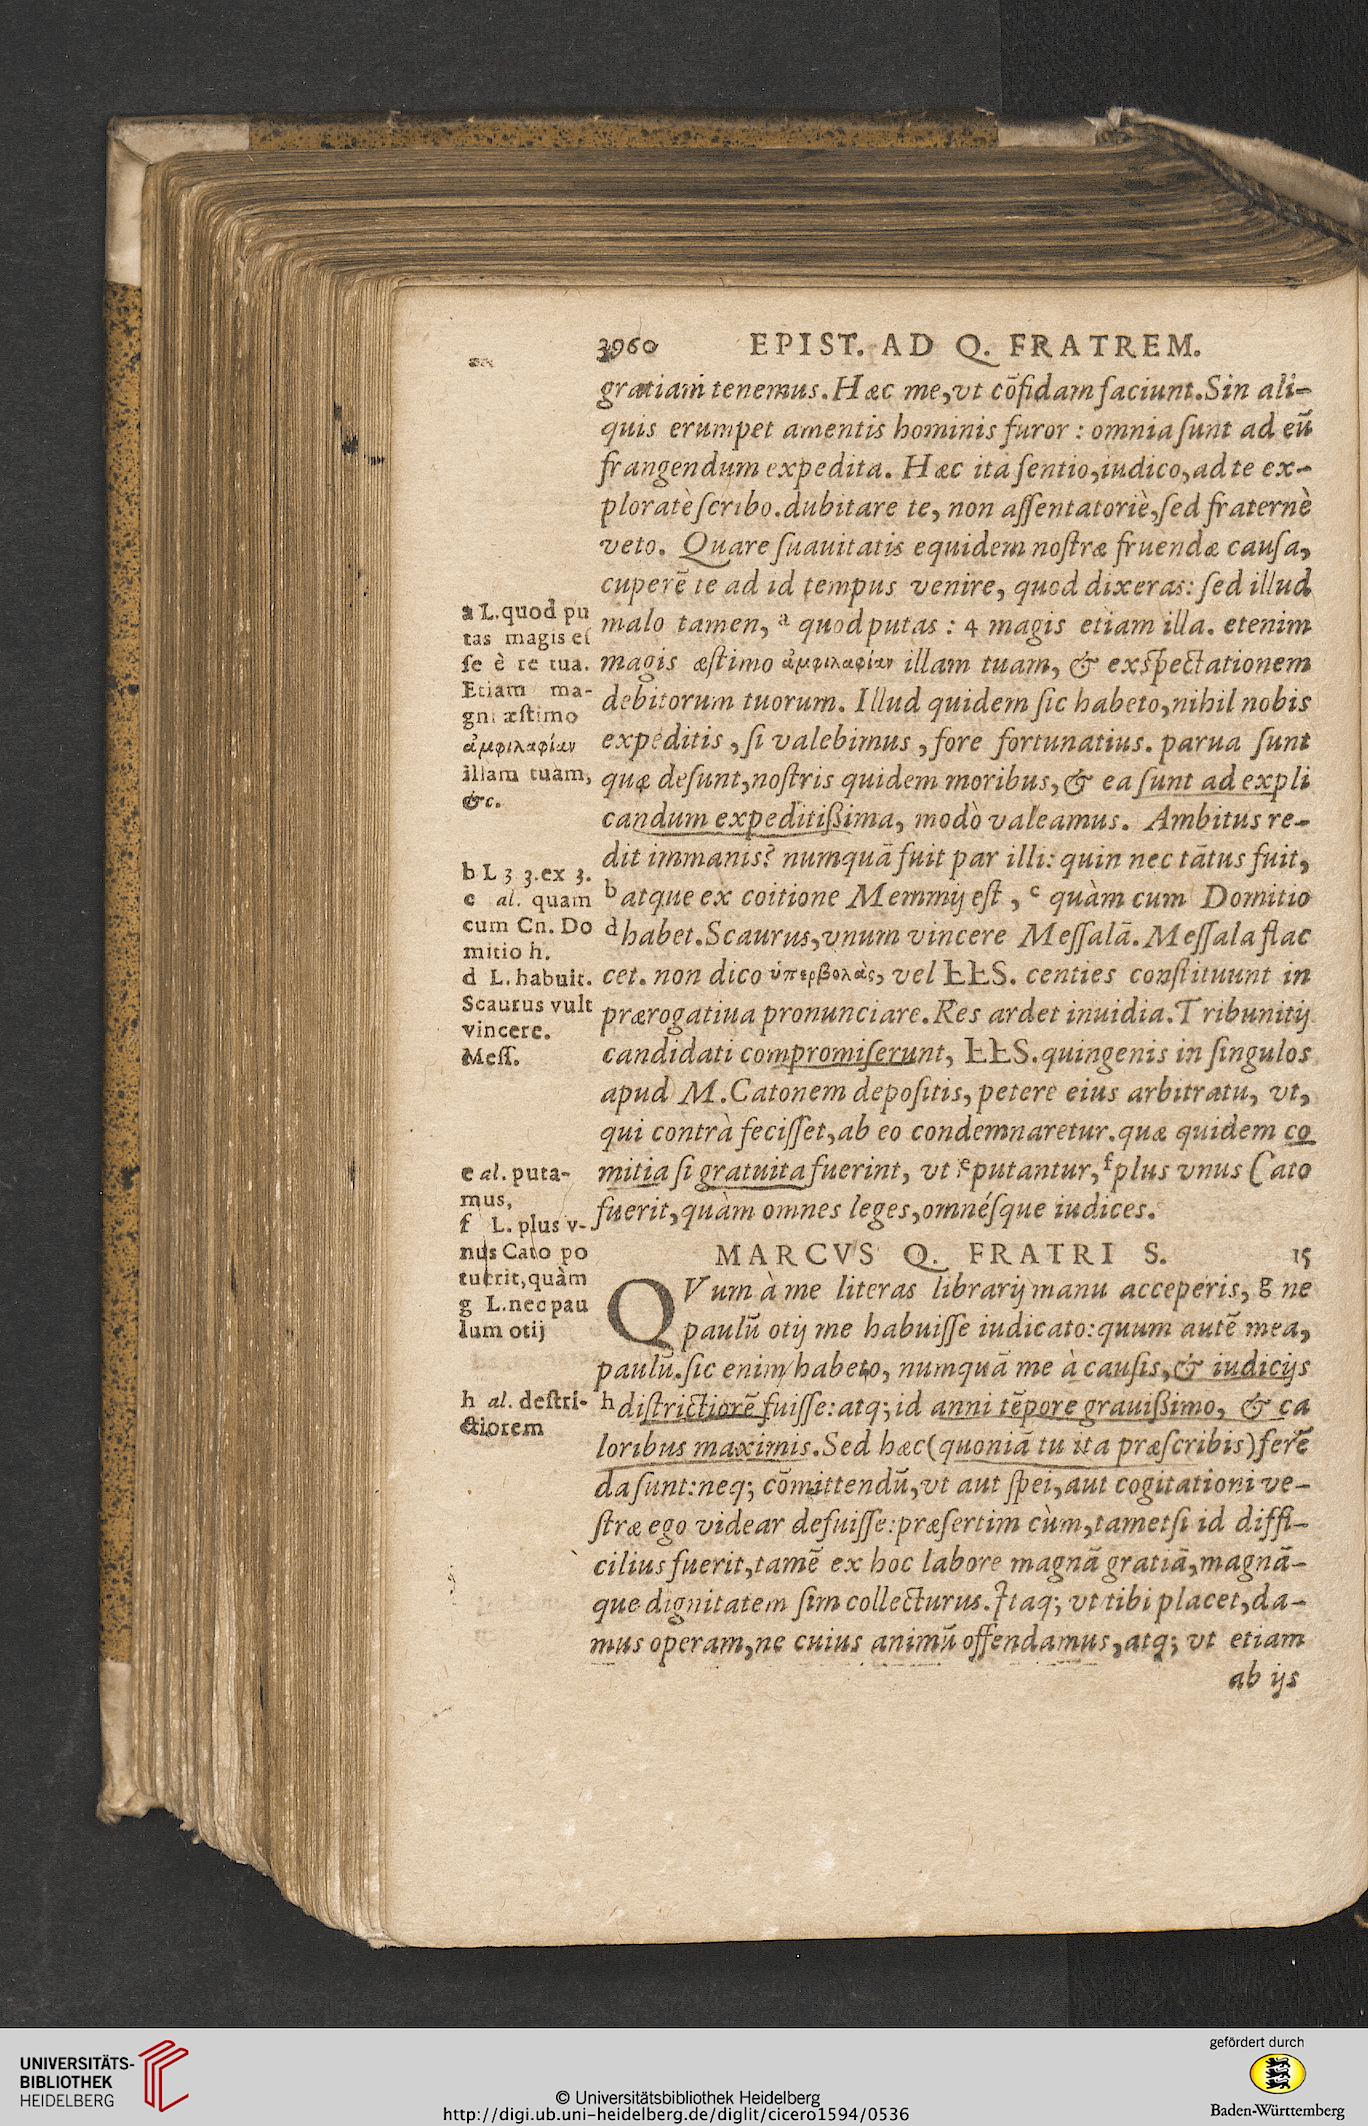 3960 EPIST. AD Q. FRATREM.
gratiam tenemus. Hæc me, vt cōfidam faciunt. Sin ali-
quis erumpet amentis hominis furor : omnia sunt ad eū
frangendum expedita. Hæc ita sentio, iudico, ad te ex-
ploratè scribo. dubitare te, non assentatoriè, sed fraternè
veto. Quare suauitatis equidem nostræ fruendæ causa,
cuperē te ad id tempus venire, quod dixeras: sed illud
malo tamen, a quod putas : 4 magis etiam illa. etenim
magis æstimo ἀμφιλαφίαν illam tuam, & exspectationem
debitorum tuorum. Illud quidem sic habeto, nihil nobis
expeditis, si valebimus, fore fortunatius. parua sunt
quæ desunt, nostris quidem moribus, & ea sunt ad expli
candum expeditißima, modò valeamus. Ambitus re-
dit immanis? numquā fuit par illi: quin nec tātus fuit,
b atque ex coitione Memmij est, c quàm cum Domitio
d habet. Scaurus, vnum vincere Messalā. Messala flac
cet. non dico ὑπερβολὰς, vel ƚƚS. centies constituunt in
prærogatiua pronunciare. Res ardet inuidia. Tribunitij
candidati compromiserunt, ƚƚS. quingenis in singulos
apud M. Catonem depositis, petere eius arbitratu, vt,
qui contrà fecisset, ab eo condemnaretur. quæ quidem co
mitia si gratuita fuerint, vt e putantur, f plus vnus Cato
fuerit, quàm omnes leges, omnésque iudices.
MARCVS Q. FRATRI S. 15
QVum à me literas librarij manu acceperis, g ne
paulū otij me habuisse iudicato: quum autē mea,
paulū. sic enim habeto, numquā me à causis, & iudicijs
h districtiorē fuisse: atq; id anni tēpore grauißimo, & ca
loribus maximis. Sed hæc (quoniā tu ita præscribis) ferē
da sunt: neq; cōmittendū, vt aut spei, aut cogitationi ve-
stræ ego videar defuisse: præsertim cùm, tametsi id diffi-
cilius fuerit, tamē ex hoc labore magnā gratiā, magnā-
que dignitatem sim collecturus. Itaq; vt tibi placet, da-
mus operam, ne cuius animū offendamus, atq; vt etiam
ab ijs
a L. quod pu
tas magis es
se è re tua.
Etiam ma-
gni æstimo
ἀμφιλαφίαν
illam tuam,
&c.
b L 3 3. ex 3.
c al. quam
cum Cn. Do
mitio h.
d L. habuit.
Scaurus vult
vincere.
Mess.
e al. puta-
mus,
f L. plus v-
nus Cato po
tuerit, quàm
g L. nec pau
lum otij
h al. destri-
ctiorem
UNIVERSITÄTS-
BIBLIOTHEK
HEIDELBERG
© Universitätsbibliothek Heidelberg
http://digi.ub.uni-heidelberg.de/diglit/cicero1594/0536
gefördert durch
Baden-Württemberg